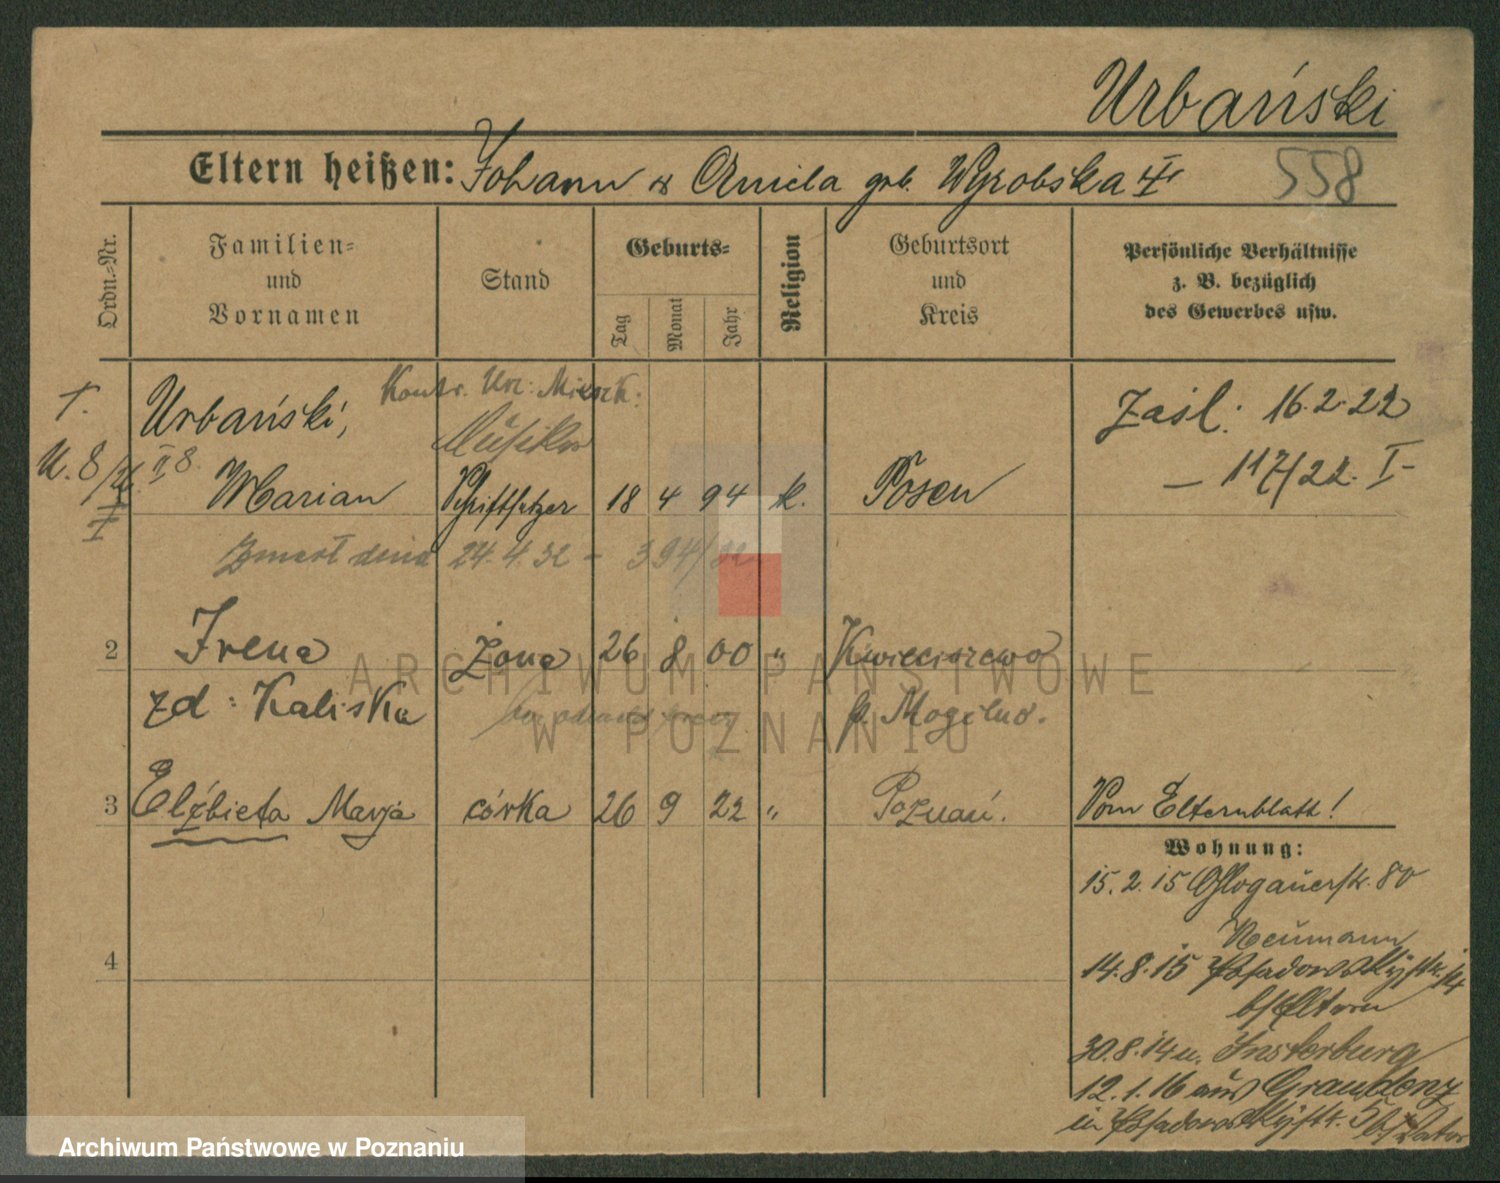 Urbański
Eltern heißen: Johann & Aniela geb. Wyrobska
558
Ordn.=Nr.
Familien=
und
Vornamen
Stand
Geburts=
Tag
Monat
Jahr
Religion
Geburtsort
und
Kreis
Persönliche Verhältnisse
z. B. bezüglich
des Gewerbes usw.
Urbański,
Musiker
Zaśl. 16.2.22
— 117/22. I-
Marian Schriftsetzer 18 4 94 k. Posen
Zmarł dnia 24.4.32 - 394/32
2 Irena żona 26 8 00 " Kwieciszewo
zd: Kaliska p. Mogilno.
3 Elżbieta Marja córka 26 9 22 " Poznań.
Vom Elternblatt!
Wohnung:
15.2.15 Glogauerstr. 80
Neumann
14.8.15 Posadowskystr. 14
b/Eltern
30.8.14 u. Insterburg
12.1.16 aus Graudenz
in Posadowskystr. 5 b/Vater
4
ARCHIWUM PAŃSTWOWE
W POZNANIU
Archiwum Państwowe w Poznaniu